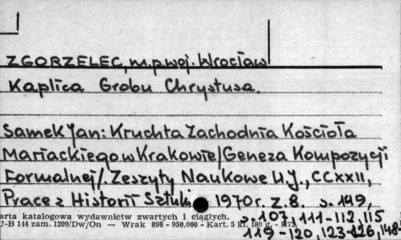 ZGORZELEC, m.p.woj. Wrocław
Kaplica Grobu Chrystusa.
Samek Jan: Kruchta Zachodnia Kościoła
Mariackiego w Krakowie/Geneza Kompozycji
Formalnej/. Zeszyty Naukowe UJ., CCXXII,
Prace z Historii Sztuki 1970 r. Z.8. s. 149,
s. 107, 111-112, 115
119-120, 123-126, 148
arta katalogowa wydawnictw zwartych i ciągłych.
U-B 144 zam. 1209/Dw/On — Wrak 898 - 950.000 - Kart. 5 kl. 180 g.